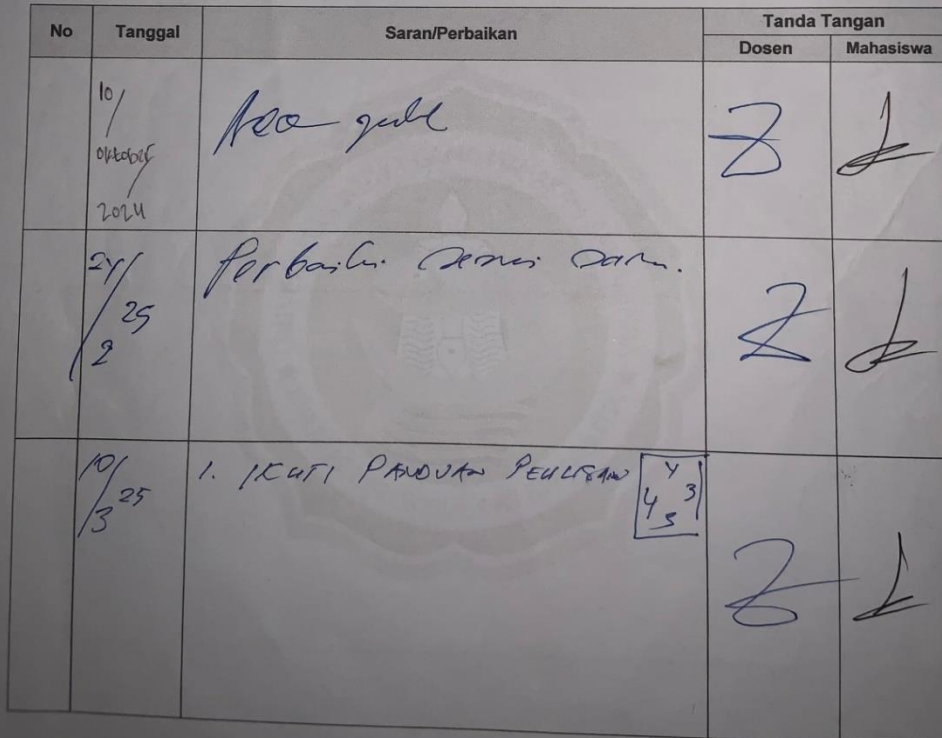 No Tanggal Saran/Perbaikan Tanda Tangan
Dosen Mahasiswa
10/
Oktober/
2024
24/2 25 Perbaiki sesuai saran.
10/3 25 1. IKUTI PANDUAN PENULISAN 4 4 3 3